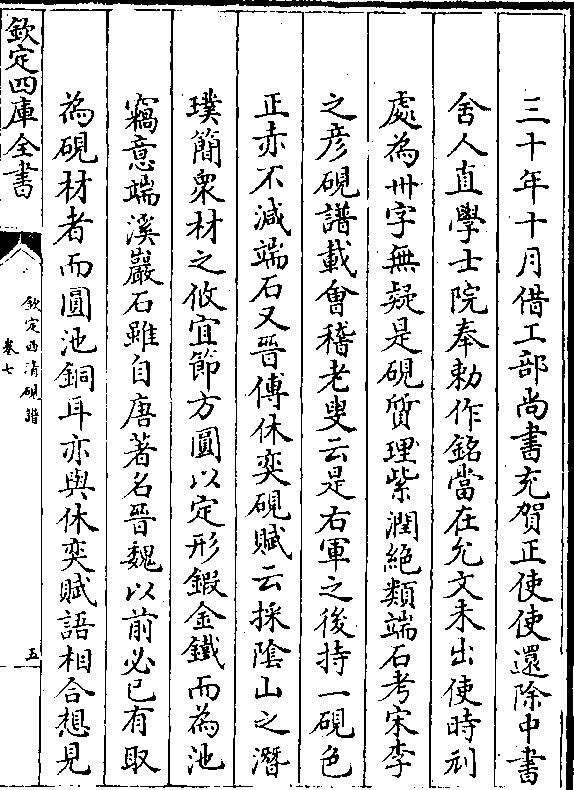 三十年十月借工部尚書充賀正使使還除中書
舍人直學士院奉勅作銘當在允文未出使時刓
處為卅字無疑是硯質理紫潤絶類端石考宋李
之彦硯譜載會稽老叟云是右軍之後持一硯色
正赤不減端石又晉傅休奕硯賦云採陰山之潛
璞簡衆材之攸宜節方圓以定形鍜金鐵而為池
竊意端溪巖石雖自唐著名晉魏以前必已有取
為硯材者而圓池銅耳亦與休奕賦語相合想見
欽定四庫全書
欽定西清硯譜
卷七
五